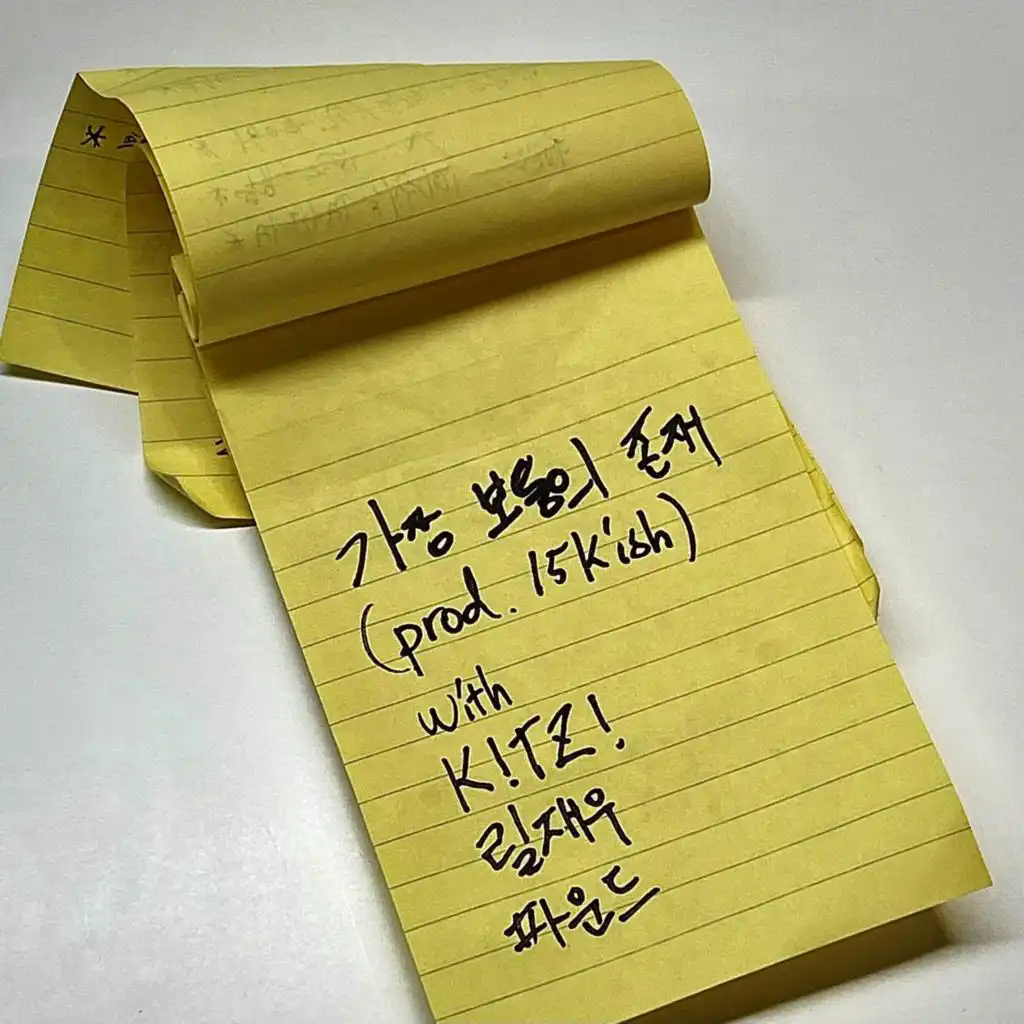 가장 보통의 존재
(prod. 15K'ish)
with
K!TZ!
릴재우
파운드